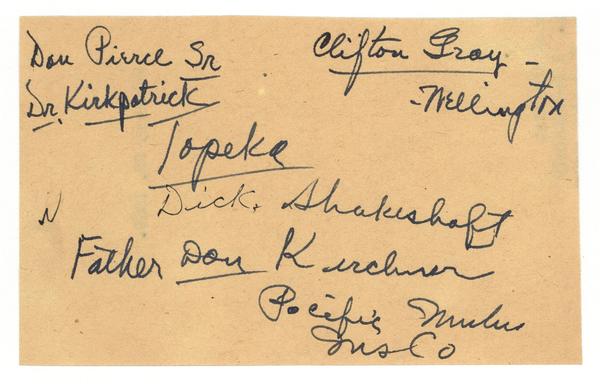 Don Pierce Sr
Clifton Gray -
Dr. Kirkpatrick
- Wellington
Topeka
N
Dick. Shakeshaft
Father Don Kirchner
Pacific
Ins Co